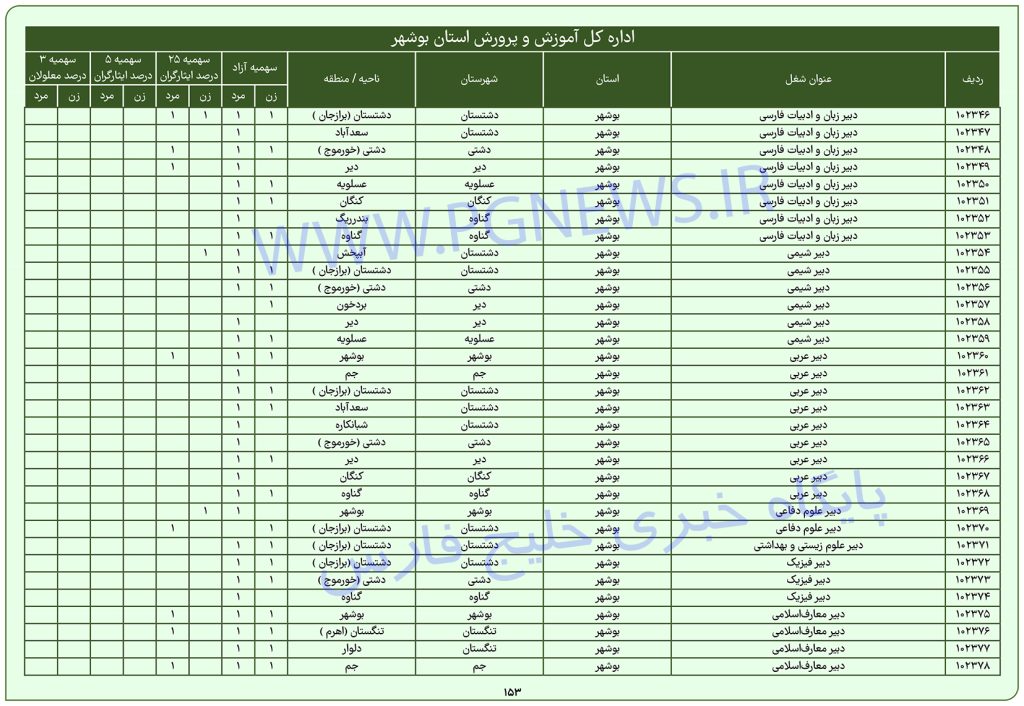 اداره کل آموزش و پرورش استان بوشهر
ردیف عنوان شغل استان شهرستان ناحیه / منطقه سهمیه آزاد سهمیه ۲۵ درصد ایثارگران سهمیه ۵ درصد ایثارگران سهمیه ۳ درصد معلولان
زن مرد زن مرد زن مرد زن مرد
۱۰۲۳۴۶ دبیر زبان و ادبیات فارسی بوشهر دشتستان دشتستان (برازجان ) ۱ ۱ ۱ ۱
۱۰۲۳۴۷ دبیر زبان و ادبیات فارسی بوشهر دشتستان سعدآباد ۱
۱۰۲۳۴۸ دبیر زبان و ادبیات فارسی بوشهر دشتی دشتی (خورموج ) ۱ ۱ ۱
۱۰۲۳۴۹ دبیر زبان و ادبیات فارسی بوشهر دیر دیر ۱ ۱
۱۰۲۳۵۰ دبیر زبان و ادبیات فارسی بوشهر عسلویه عسلویه ۱ ۱
۱۰۲۳۵۱ دبیر زبان و ادبیات فارسی بوشهر کنگان کنگان ۱ ۱
۱۰۲۳۵۲ دبیر زبان و ادبیات فارسی بوشهر گناوه بندرریگ ۱
۱۰۲۳۵۳ دبیر زبان و ادبیات فارسی بوشهر گناوه گناوه ۱ ۱
۱۰۲۳۵۴ دبیر شیمی بوشهر دشتستان آبپخش ۱ ۱
۱۰۲۳۵۵ دبیر شیمی بوشهر دشتستان دشتستان (برازجان ) ۱ ۱
۱۰۲۳۵۶ دبیر شیمی بوشهر دشتی دشتی (خورموج ) ۱ ۱
۱۰۲۳۵۷ دبیر شیمی بوشهر دیر بردخون ۱
۱۰۲۳۵۸ دبیر شیمی بوشهر دیر دیر ۱
۱۰۲۳۵۹ دبیر شیمی بوشهر عسلویه عسلویه ۱ ۱
۱۰۲۳۶۰ دبیر عربی بوشهر بوشهر بوشهر ۱ ۱ ۱
۱۰۲۳۶۱ دبیر عربی بوشهر جم جم ۱
۱۰۲۳۶۲ دبیر عربی بوشهر دشتستان دشتستان (برازجان ) ۱ ۱
۱۰۲۳۶۳ دبیر عربی بوشهر دشتستان سعدآباد ۱ ۱
۱۰۲۳۶۴ دبیر عربی بوشهر دشتستان شبانکاره ۱
۱۰۲۳۶۵ دبیر عربی بوشهر دشتی دشتی (خورموج ) ۱
۱۰۲۳۶۶ دبیر عربی بوشهر دیر دیر ۱ ۱
۱۰۲۳۶۷ دبیر عربی بوشهر کنگان کنگان ۱
۱۰۲۳۶۸ دبیر عربی بوشهر گناوه گناوه ۱ ۱
۱۰۲۳۶۹ دبیر علوم دفاعی بوشهر بوشهر بوشهر ۱ ۱
۱۰۲۳۷۰ دبیر علوم دفاعی بوشهر دشتستان دشتستان (برازجان ) ۱ ۱
۱۰۲۳۷۱ دبیر علوم زیستی و بهداشتی بوشهر دشتستان دشتستان (برازجان ) ۱ ۱
۱۰۲۳۷۲ دبیر فیزیک بوشهر دشتستان دشتستان (برازجان ) ۱ ۱
۱۰۲۳۷۳ دبیر فیزیک بوشهر دشتی دشتی (خورموج ) ۱ ۱
۱۰۲۳۷۴ دبیر فیزیک بوشهر گناوه گناوه ۱
۱۰۲۳۷۵ دبیر معارف‌اسلامی بوشهر بوشهر بوشهر ۱ ۱ ۱
۱۰۲۳۷۶ دبیر معارف‌اسلامی بوشهر تنگستان تنگستان (اهرم ) ۱ ۱ ۱
۱۰۲۳۷۷ دبیر معارف‌اسلامی بوشهر تنگستان دلوار ۱ ۱
۱۰۲۳۷۸ دبیر معارف‌اسلامی بوشهر جم جم ۱ ۱ ۱
WWW.PGNEWS.IR
پایگاه خبری خلیج فارس
۱۵۳